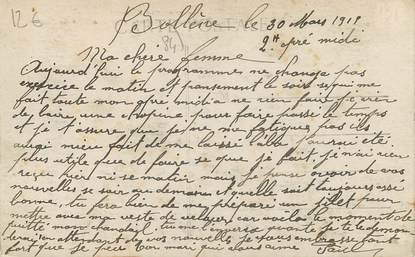 12 €
Bollène le 30 Mars 1918
84
2 H apré midi
Ma chere femme
Aujourd'hui le programme ne change pas
exercice le matin et pansement le soir se qui me
fait toute mon apré midi a ne rien faire que rien
de laire une chopine pour faire passé le temps
et je t'assure que je ne me fatigues pas
ausi mieu fait de me laissé labà pourai été
plus utile que de faire se que je fait je n'ai rien
reçu hier ni se matin mais je pense avoir de vos
nouvelles se soir ou demain et quelle soit toujours ausi
bonne, tu fera bien de me préparé un gilet pour
mettre avec ma veste de velour car voila le moment de
quitté mon chandail, tu me l'enverra quante je te le demanderai
en attendant de vos nouvelles je vous embrasse fort
fort que je peu ton mari qui vous aime